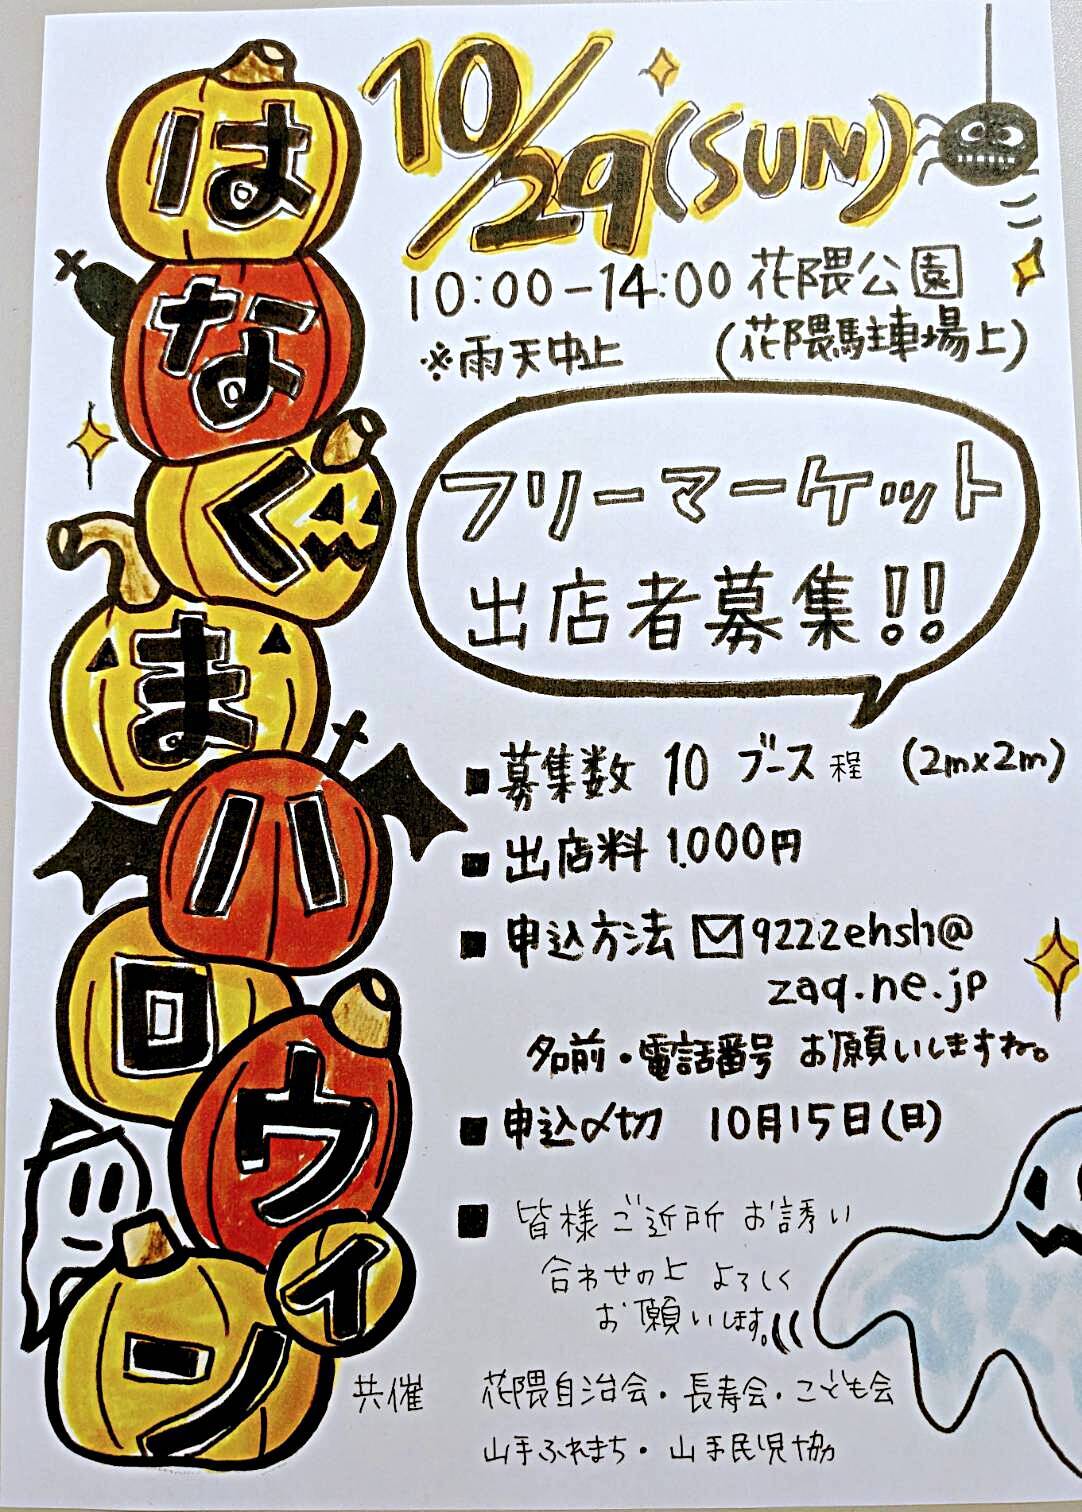 はなくまハロウィン
10/29(SUN)
10:00-14:00 花隈公園
※雨天中止 (花隈駐車場上)
フリーマーケット
出店者募集!!
■募集数 10 ブース程 (2m×2m)
■出店料 1.000円
■申込方法 ✉9222ehsh@
zaq.ne.jp
名前・電話番号 お願いしますね。
■申込〆切 10月15日(日)
■皆様ご近所お誘い
合わせの上 よろしく
お願いします。
共催 花隈自治会・長寿会・こども会
山手ふれまち・山手民児協